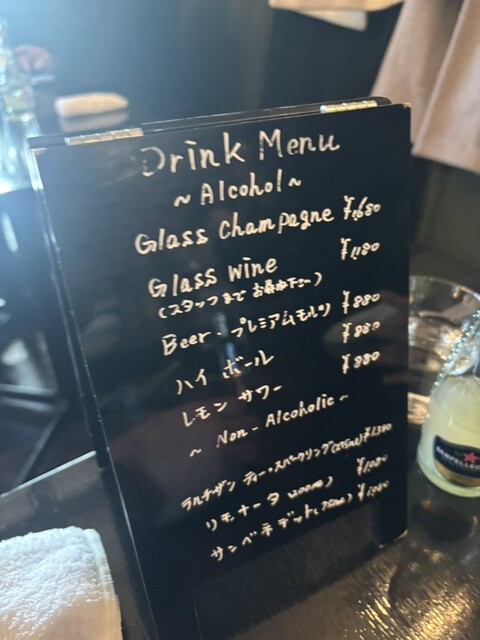 Drink Menu
~ Alcohol ~
Glass Champagne ¥1,680
Glass Wine ¥1,180
(スタッフまで お尋ね下さい)
Beer・プレミアムモルツ ¥880
ハイボール ¥880
レモンサワー ¥880
~ Non-Alcoholic ~
ラルチザン ティー・スパークリング(275ml) ¥1,380
リモナータ (200ml)
サンベネデット(750ml)